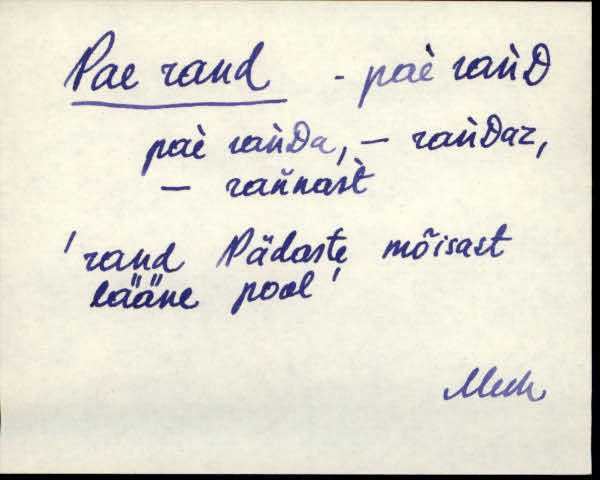 Pae rand - paè rań̀D
paè rań̀Da, — rań̀Daz,
— rań̀nast̀
'rand Pädaste mõisast
lääne pool'